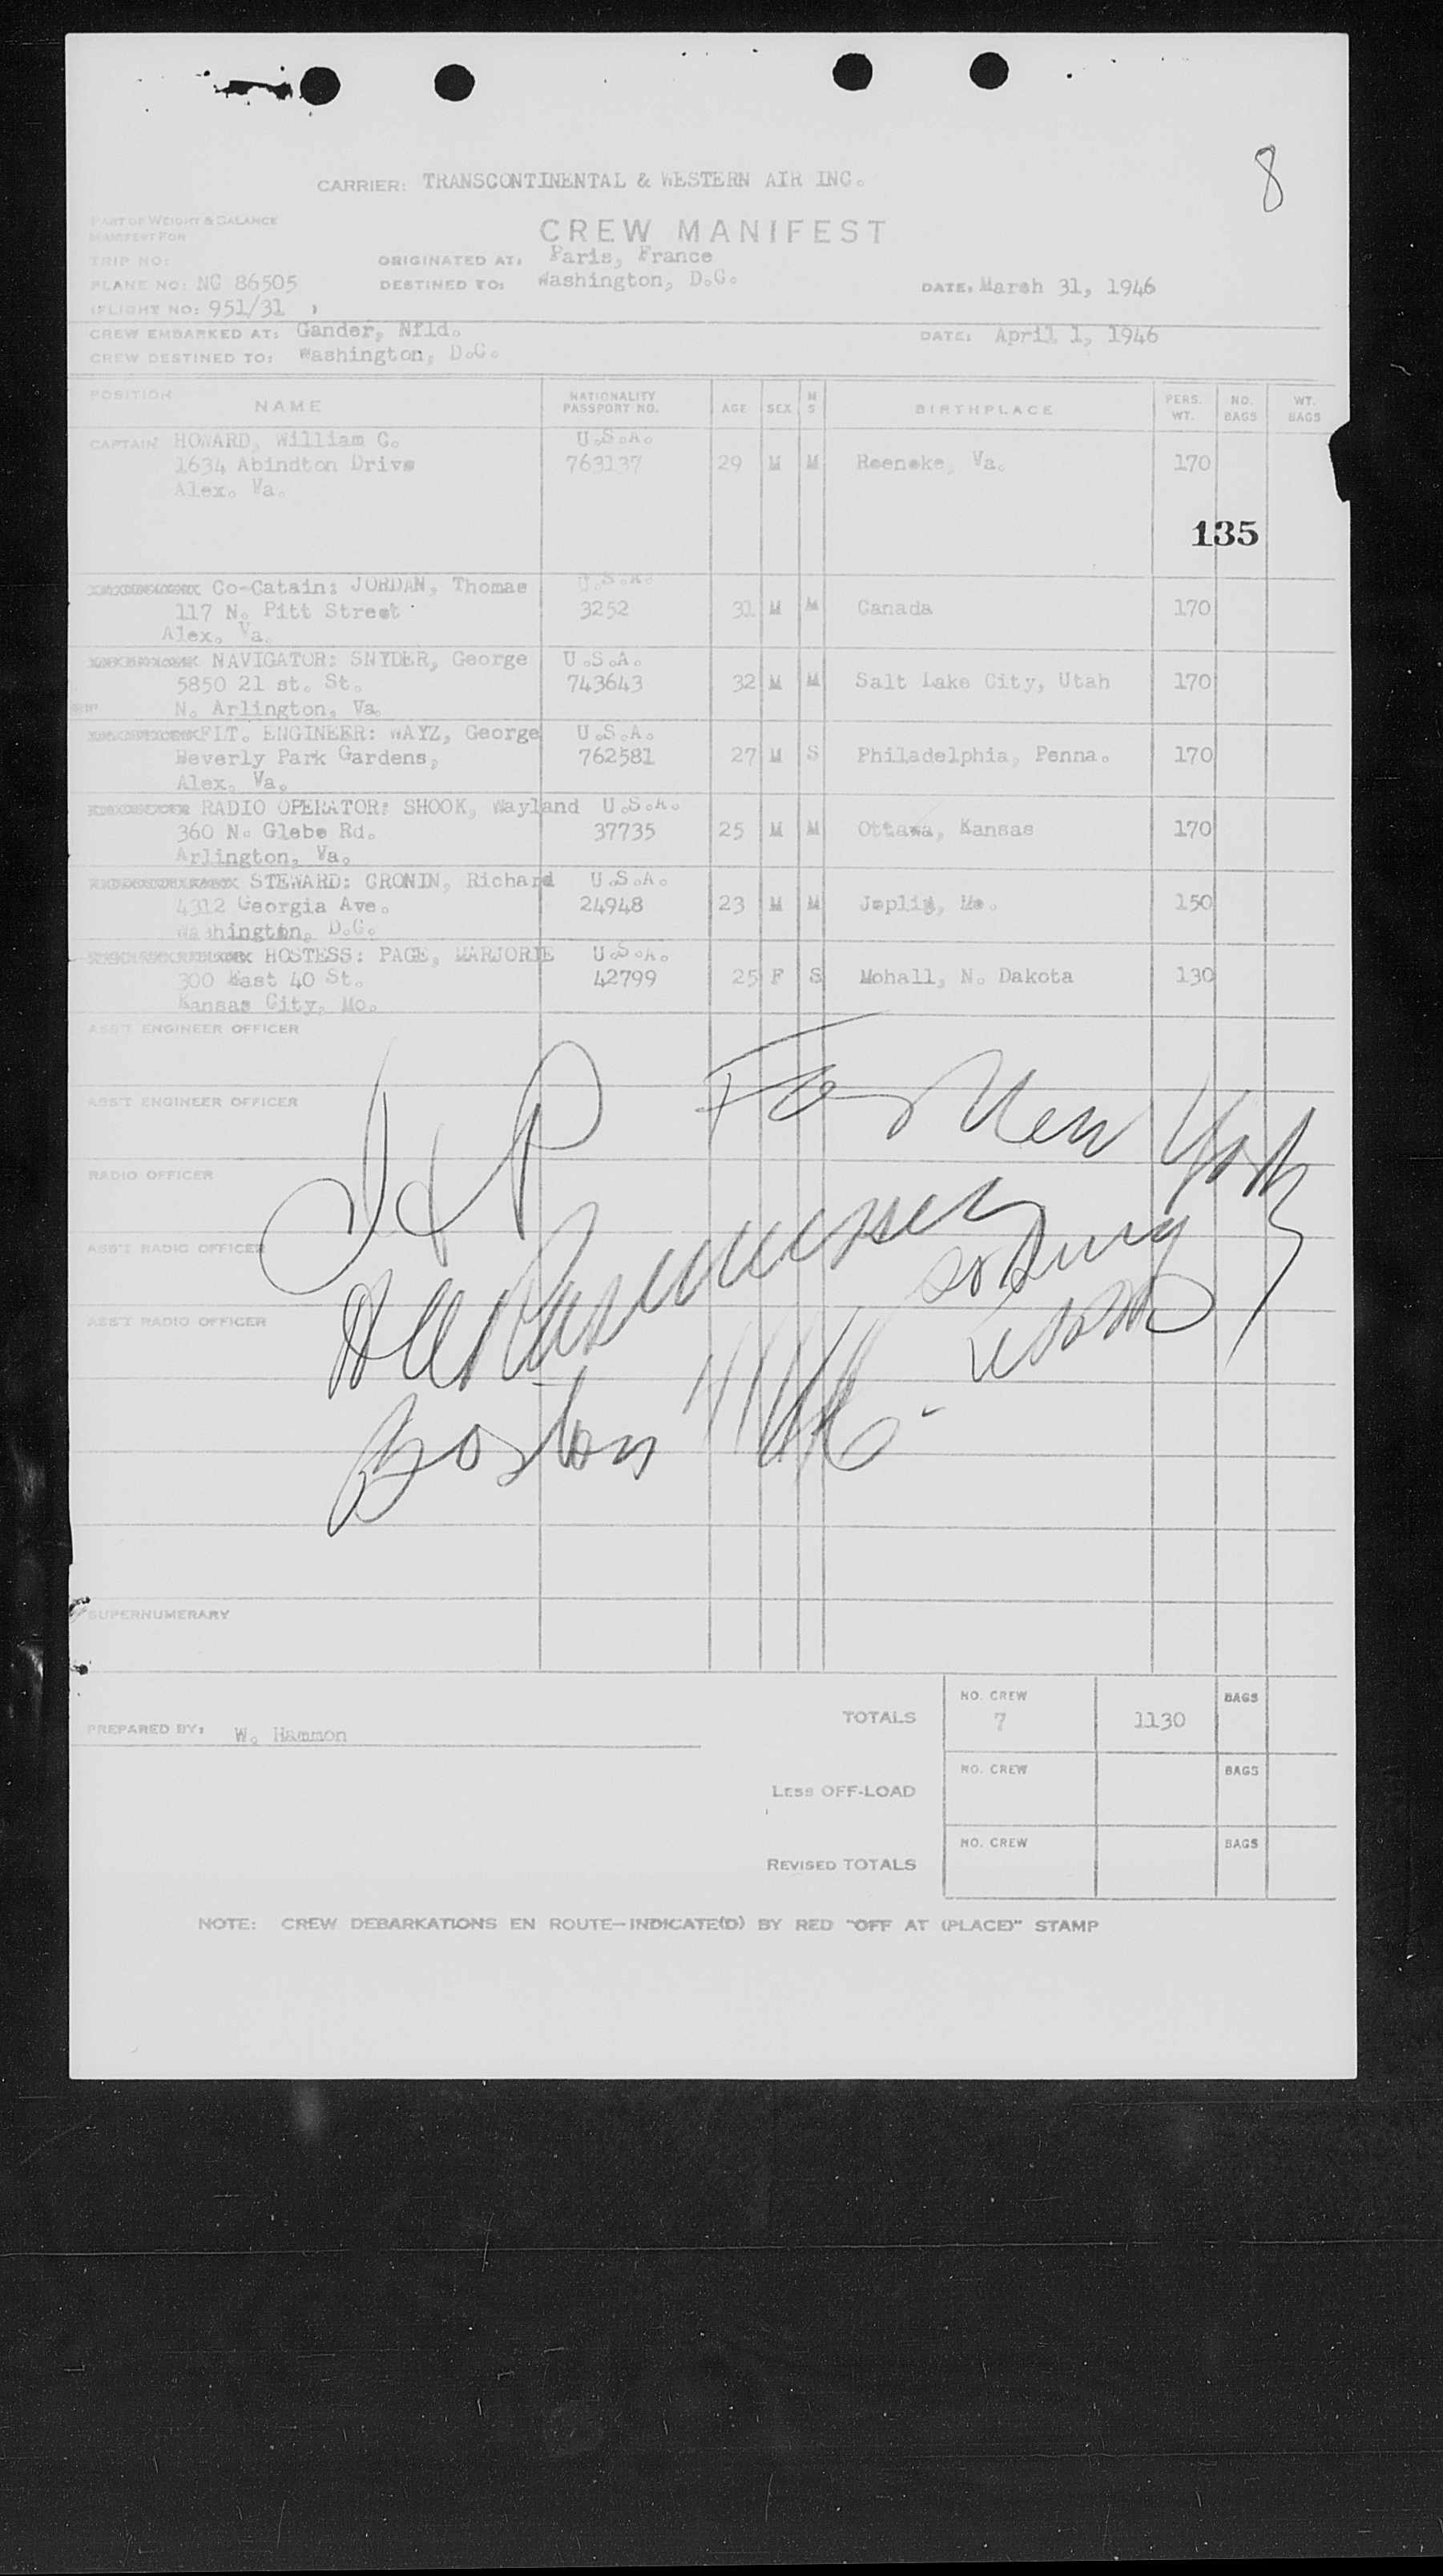 8
CARRIER: TRANSCONTINENTAL & WESTERN AIR INC.
PART OF WEIGHT & BALANCE
MANIFEST FOR
CREW MANIFEST
TRIP NO: ORIGINATED AT: Paris, France
PLANE NO: NC 86505 DESTINED TO: Washington, D.C. DATE: March 31, 1946
(FLIGHT NO: 951/31 )
CREW EMBARKED AT: Gander, Nfld. DATE: April 1, 1946
CREW DESTINED TO: Washington, D.C.
POSITION NAME NATIONALITY PASSPORT NO. AGE SEX M S BIRTHPLACE PERS. WT. NO. BAGS WT. BAGS
CAPTAIN HOWARD, William C. U.S.A.
1634 Abindton Drive 763137 29 M M Roenoke, Va. 170
Alex. Va.
135
Co-Catain: JORDAN, Thomas U.S.A.
117 N. Pitt Street 3252 31 M M Canada 170
Alex. Va.
NAVIGATOR: SNYDER, George U.S.A.
5850 21 st. St. 743643 32 M M Salt Lake City, Utah 170
N. Arlington, Va.
FLT. ENGINEER: WAYZ, George U.S.A.
Beverly Park Gardens, 762581 27 M S Philadelphia, Penna. 170
Alex. Va.
RADIO OPERATOR: SHOOK, Wayland U.S.A.
360 N. Glebe Rd. 37735 25 M M Ottawa, Kansas 170
Arlington, Va.
STEWARD: CRONIN, Richard U.S.A.
4312 Georgia Ave. 24948 23 M M Joplin, Mo. 150
Washington, D.C.
HOSTESS: PAGE, MARJORIE U.S.A.
300 East 40 St. 42799 25 F S Mohall, N. Dakota 130
Kansas City, Mo.
ASS'T ENGINEER OFFICER
ASS'T ENGINEER OFFICER
For New York
RADIO OFFICER
ASS'T RADIO OFFICER
ASS'T RADIO OFFICER
Boston
SUPERNUMERARY
PREPARED BY: W. Hammon
TOTALS NO. CREW 7 1130 BAGS
LESS OFF-LOAD NO. CREW BAGS
REVISED TOTALS NO. CREW BAGS
NOTE: CREW DEBARKATIONS EN ROUTE—INDICATE(D) BY RED "OFF AT (PLACE)" STAMP